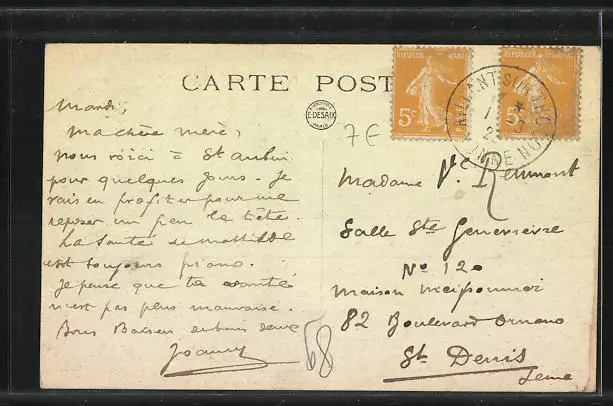 CARTE POST
E·DESAIX
PARIS
REPUBLIQUE FRANÇAISE
5c
5c
AILLANT SUR
7€
Mardi,
Ma chère mère,
nous voici à St aubin
pour quelques jours. Je
vais en profiter pour me
reposer un peu la tête.
La santé de Mathilde
est toujours piano.
Je pense que ta santé
n'est pas plus mauvaise.
Bons Baisers de deux
98
Madame Ve
Salle Ste Geneviève
No 120
Maison
82 Boulevard Ornano
St Denis
Seine